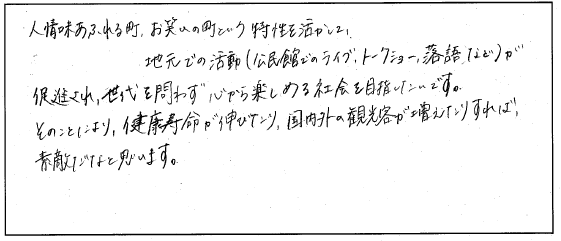 人情味あふれる町、お笑いの町という特性を活かして、
地元での活動(公民館でのライブ、トークショー、落語など)が
促進され、世代を問わず心から楽しめる社会を目指したいです。
そのことにより、健康寿命が伸びたり、国内外の観光客が増えたりすれば、
素敵だなと思います。